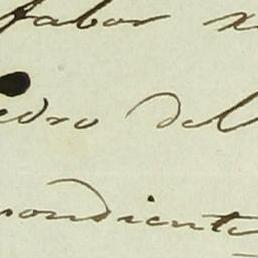 fabor
edro del
pondiente